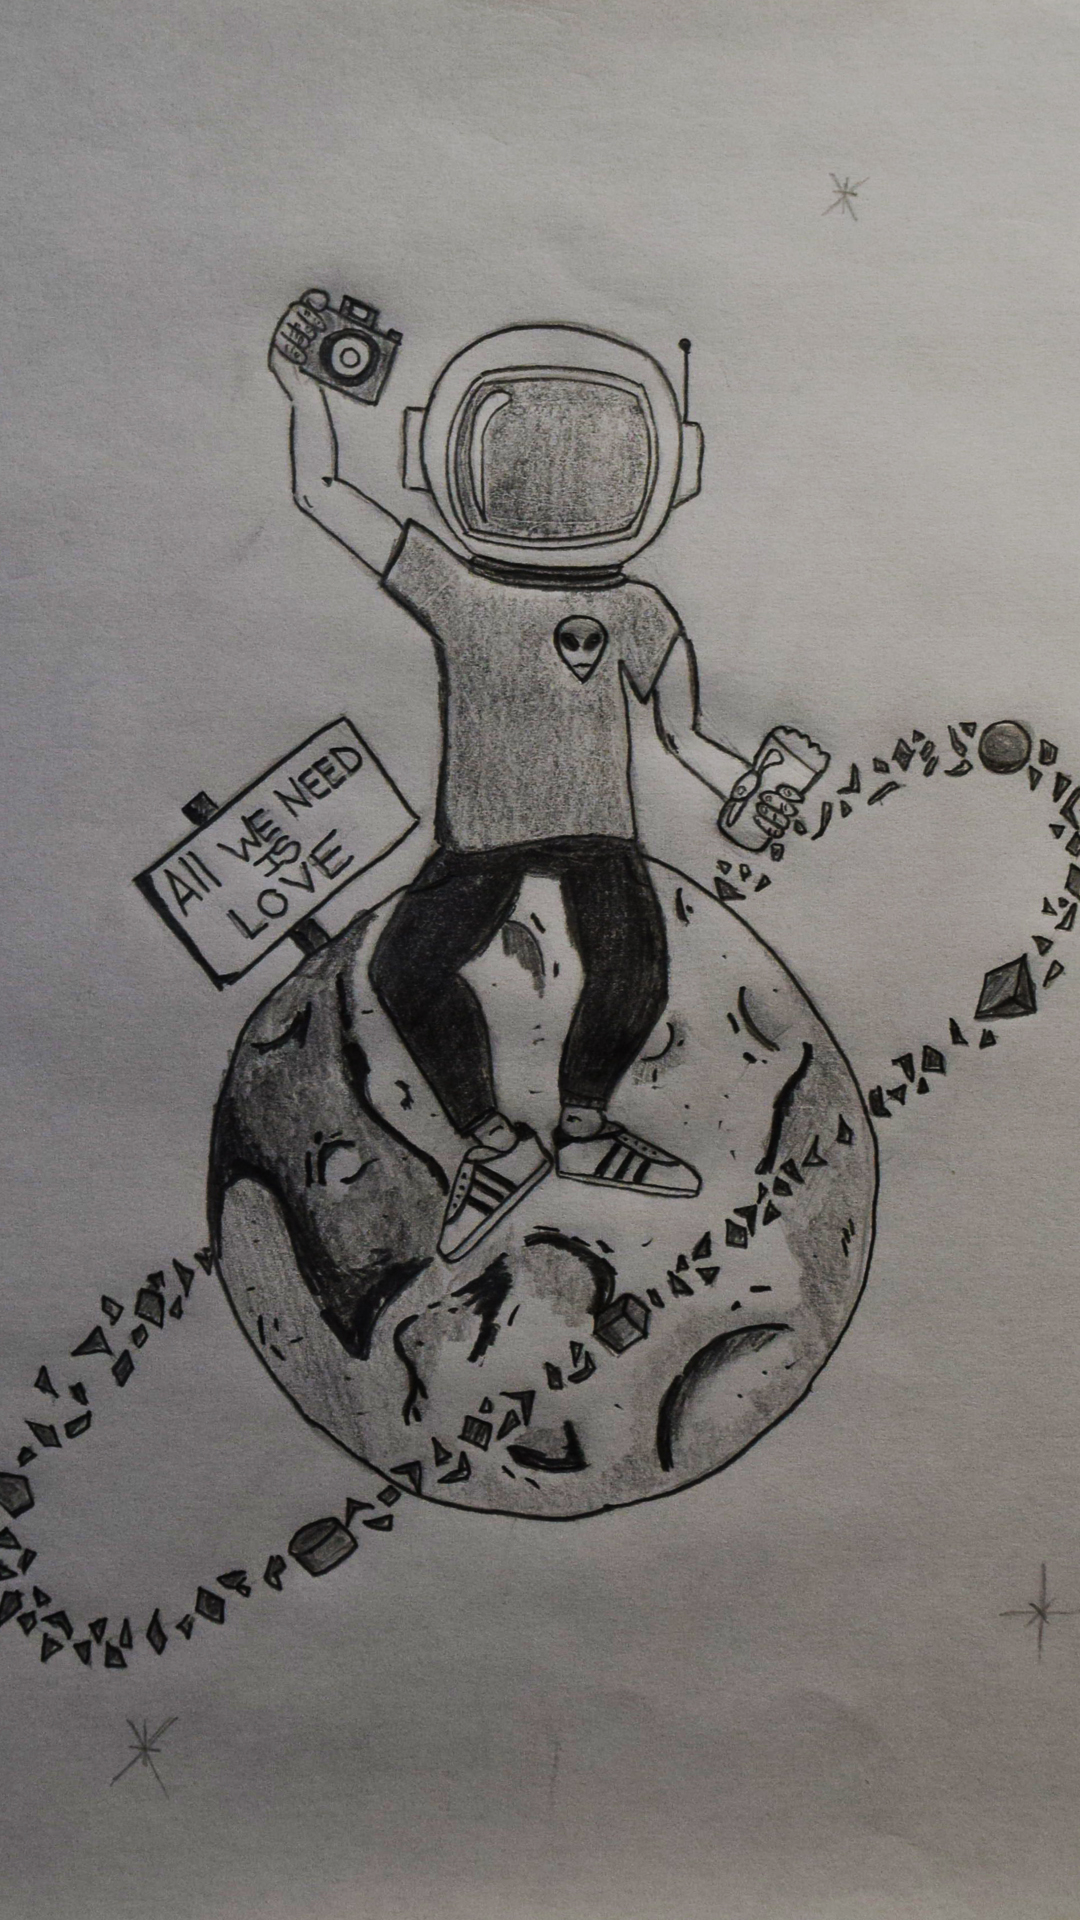 All WE NEED
IS
LOVE